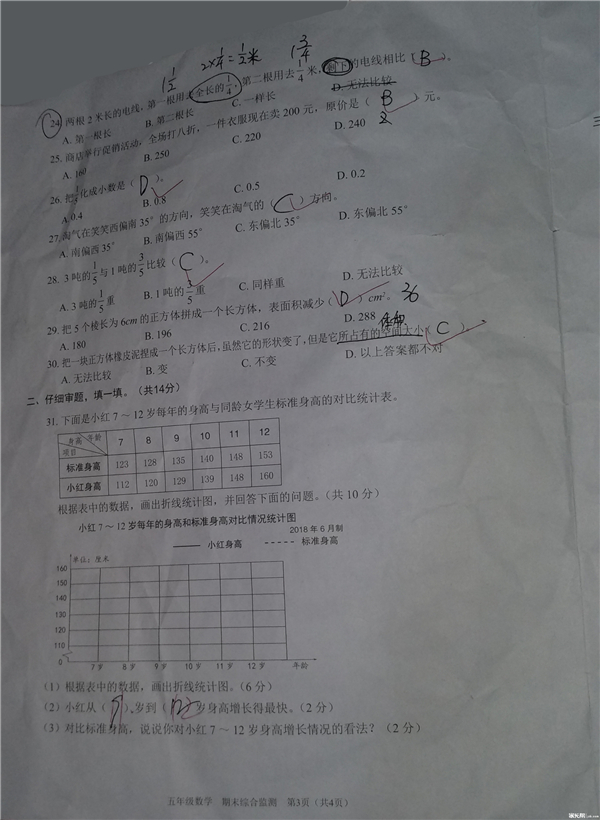 2×1/4=1/2米
1 1/2
1 3/4
24. 两根2米长的电线，第一根用去全长的1/4，第二根用去1/4米，剩下的电线相比（B）。
A. 第一根长 B. 第二根长 C. 一样长 D. 无法比较
25. 商店举行促销活动，全场打八折，一件衣服现在卖200元，原价是（B）元。
A. 160 B. 250 C. 220 D. 240
26. 把 化成小数是（D）。
A. 0.4 B. 0.8 C. 0.5 D. 0.2
27. 淘气在笑笑西偏南35°的方向，笑笑在淘气的（C）方向。
A. 南偏西35° B. 南偏西55° C. 东偏北35° D. 东偏北55°
28. 3吨的1/5与1吨的3/5比较（C）。
A. 3吨的1/5重 B. 1吨的3/5重 C. 同样重 D. 无法比较
29. 把5个棱长为6cm的正方体拼成一个长方体，表面积减少（D）cm²。36
A. 180 B. 196 C. 216 D. 288
体积
30. 把一块正方体橡皮泥捏成一个长方体后，虽然它的形状变了，但是它所占有的空间大小（C）。
A. 无法比较 B. 变 C. 不变 D. 以上答案都不对
二、仔细审题，填一填。（共14分）
31. 下面是小红7～12岁每年的身高与同龄女学生标准身高的对比统计表。
身高 年龄 项目 7 8 9 10 11 12
标准身高 123 128 135 140 148 153
小红身高 112 120 129 139 148 160
根据表中的数据，画出折线统计图，并回答下面的问题。（共10分）
小红7～12岁每年的身高和标准身高对比情况统计图
2018年6月制
小红身高 标准身高
单位：厘米
160
150
140
130
120
110
0
7岁 8岁 9岁 10岁 11岁 12岁 年龄
（1）根据表中的数据，画出折线统计图。（6分）
（2）小红从（11）岁到（12）岁身高增长得最快。（2分）
（3）对比标准身高，说说你对小红7～12岁身高增长情况的看法？（2分）
五年级数学 期末综合监测 第3页（共4页）